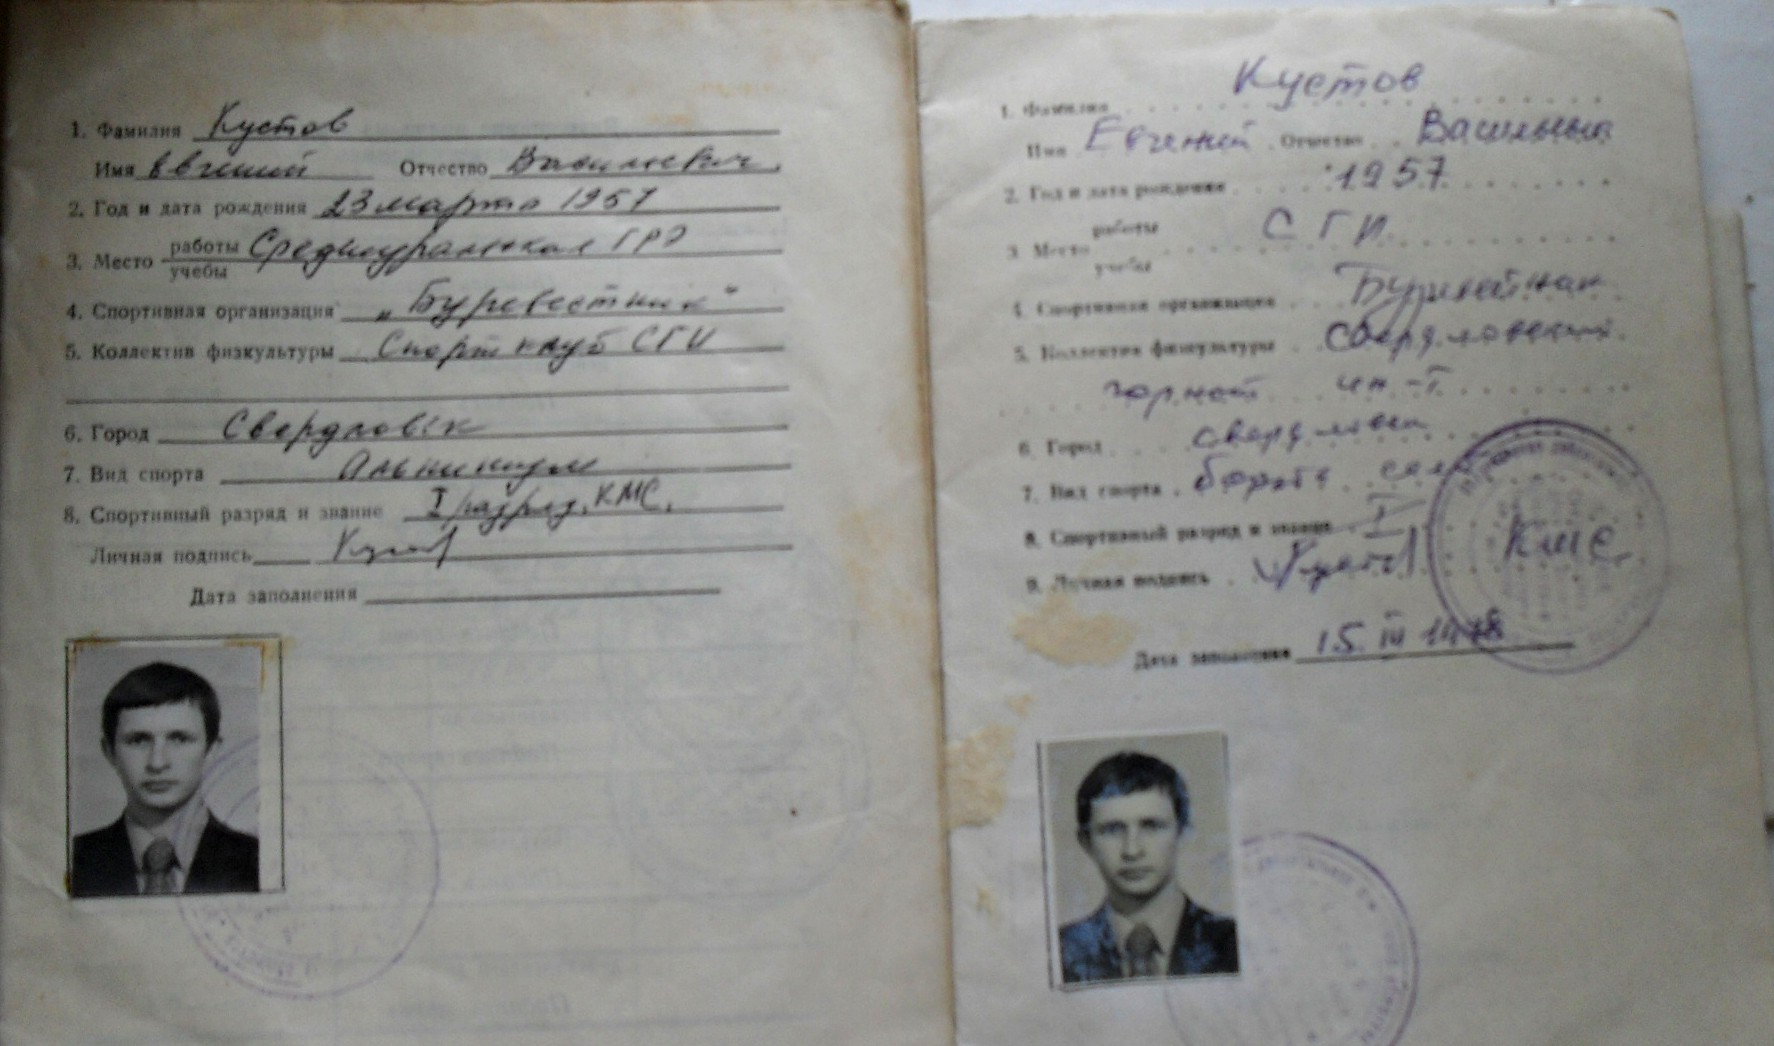 1. Фамилия Кустов
Имя Евгений Отчество Васильевич
2. Год и дата рождения 23 марта 1957
3. Место работы учебы Среднеуральская ГРЭ
4. Спортивная организация „Буревестник"
5. Коллектив физкультуры Спорт клуб СГИ
6. Город Свердловск
7. Вид спорта Альпинизм
8. Спортивный разряд и звание I разряд, КМС,
Личная подпись
Дата заполнения
1. Фамилия Кустов
Имя Евгений Отчество Васильевич
2. Год и дата рождения 1957
3. Место работы учебы СГИ
4. Спортивная организация Буревестник
5. Коллектив физкультуры Свердловский
горный ин-т
6. Город Свердловск
7. Вид спорта борьба
8. Спортивный разряд и звание I КМС
9. Личная подпись
Дата заполнения 15. III